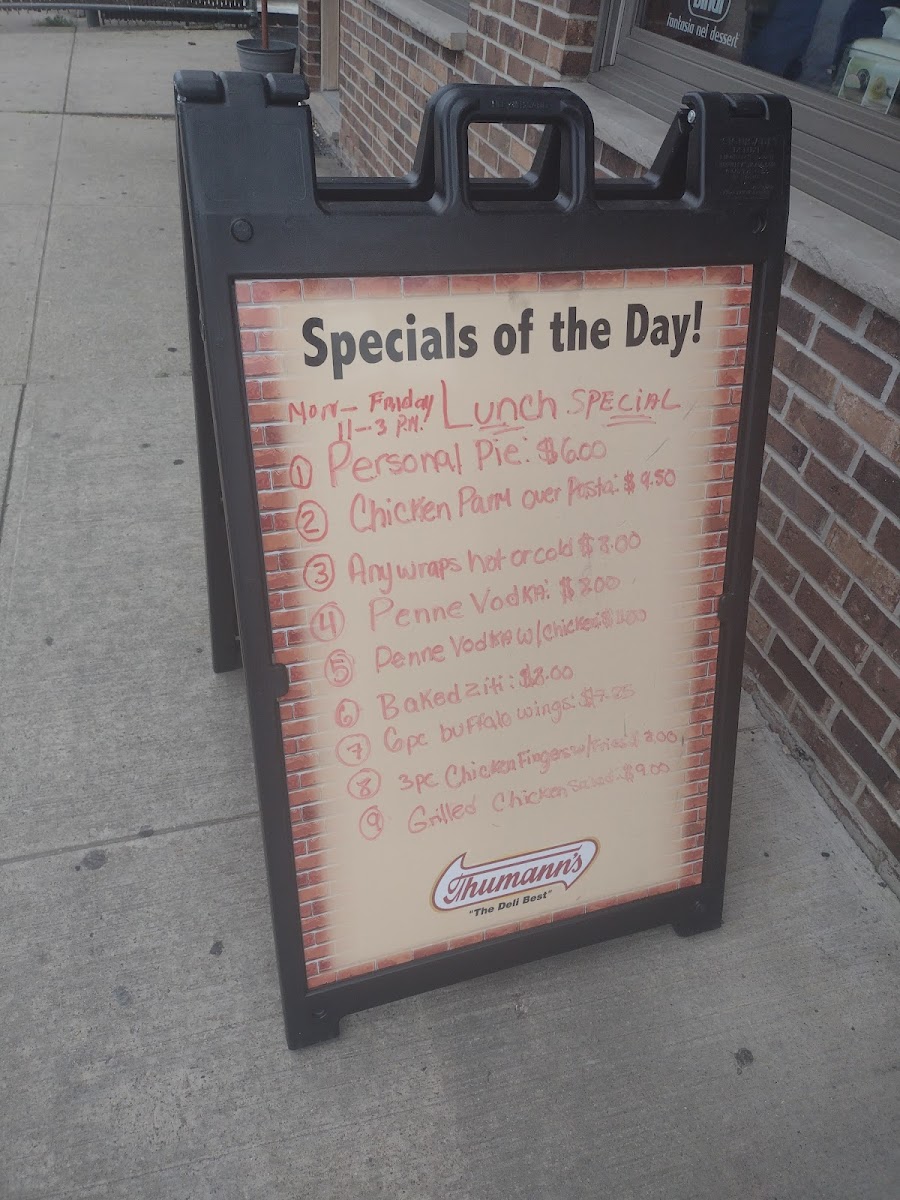 fantasia nel dessert
Specials of the Day!
Mon - Friday Lunch SPECIAL
11-3 P.M.
1 Personal Pie: $6.00
2 Chicken Parm over Pasta: $9.50
3 Any wraps hot or cold $8.00
4 Penne Vodka: $8.00
5 Penne Vodka w/chicken:
6 Baked ziti: $8.00
7 6pc buffalo wings: $7.25
8 3pc Chicken Fingers w/Fries $8.00
9 Grilled Chicken Salad: $9.00
Thumann's
"The Deli Best"